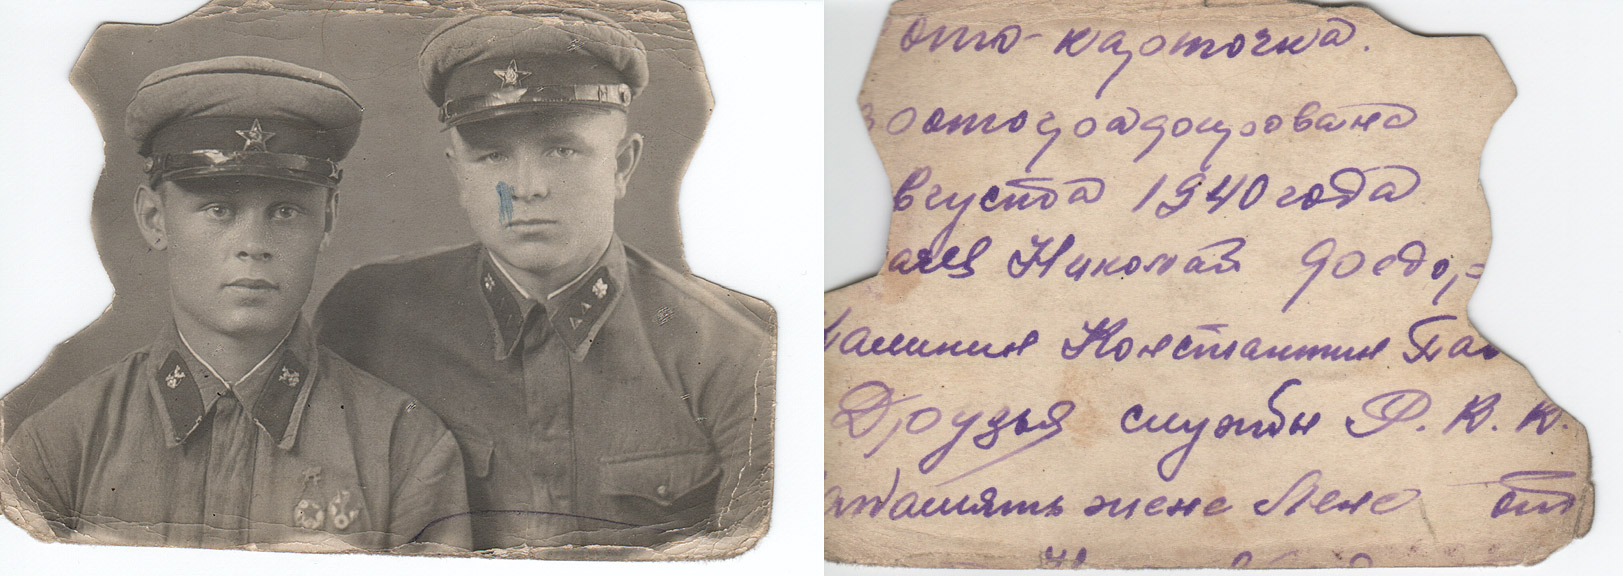 ото-карточка.
зфотографирована
вгуста 1940 года
Николай Федор=
Калинин Константин Пав
Друзья службы Р.К.К.
на память жене Лене от